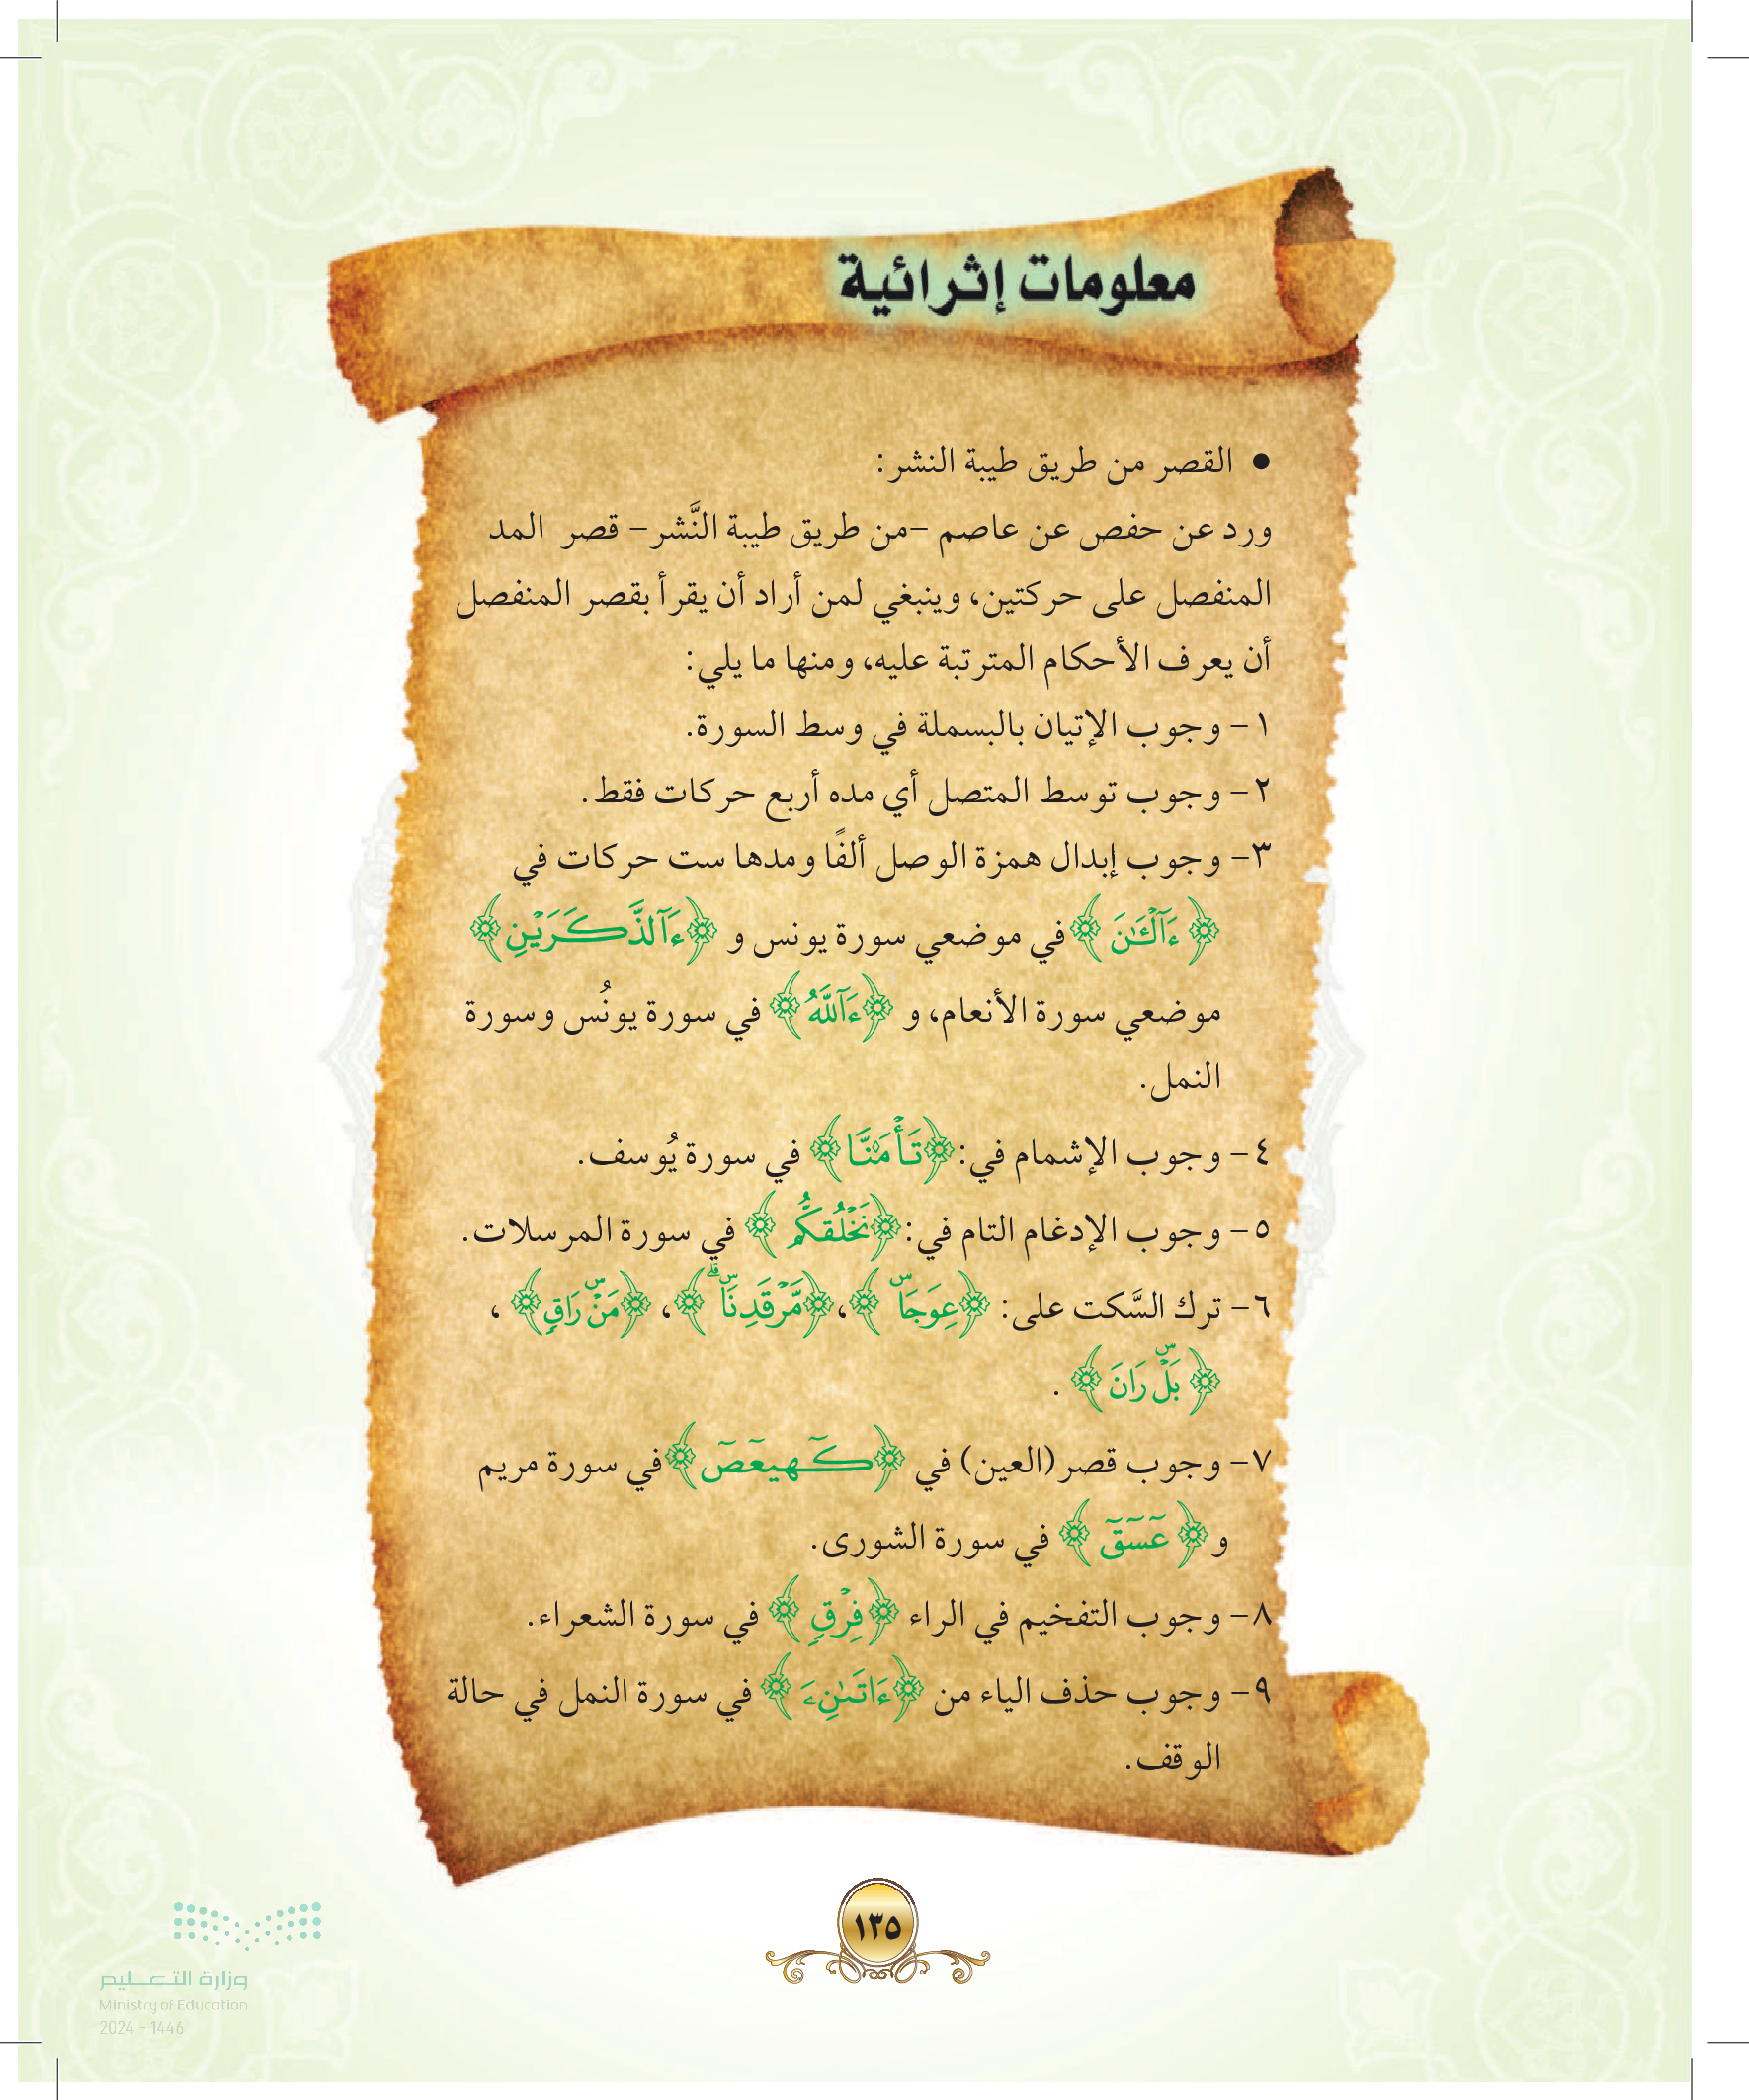 معلومات إثرائية
● القصر من طريق طيبة النشر:
ورد عن حفص عن عاصم -من طريق طيبة النَّشر- قصر المد
المنفصل على حركتين، وينبغي لمن أراد أن يقرأ بقصر المنفصل
أن يعرف الأحكام المترتبة عليه، ومنها ما يلي:
١- وجوب الإتيان بالبسملة في وسط السورة.
٢- وجوب توسط المتصل أي مده أربع حركات فقط.
٣- وجوب إبدال همزة الوصل ألفًا ومدها ست حركات في
﴿ءَآلْـَٰٔنَ﴾ في موضعي سورة يونس و ﴿ءَآلذَّكَرَيْنِ﴾
موضعي سورة الأنعام، و ﴿ءَآللَّهُ﴾ في سورة يونُس وسورة
النمل.
٤- وجوب الإشمام في: ﴿تَأْمَ۬نَّا﴾ في سورة يُوسف.
٥- وجوب الإدغام التام في: ﴿نَخْلُقكُّم﴾ في سورة المرسلات.
٦- ترك السَّكت على: ﴿عِوَجَاۜ﴾، ﴿مَّرْقَدِنَاۜۗ﴾، ﴿مَنْۜ رَاقٍ﴾،
﴿بَلْۜ رَانَ﴾.
٧- وجوب قصر (العين) في ﴿كٓهيعٓصٓ﴾ في سورة مريم
و ﴿عٓسٓقٓ﴾ في سورة الشورى.
٨- وجوب التفخيم في الراء ﴿فِرْقٍ﴾ في سورة الشعراء.
٩- وجوب حذف الياء من ﴿ءَاتَىٰنِۦَ﴾ في سورة النمل في حالة
الوقف.
١٣٥
وزارة التعليم
Ministry of Education
2024 - 1446